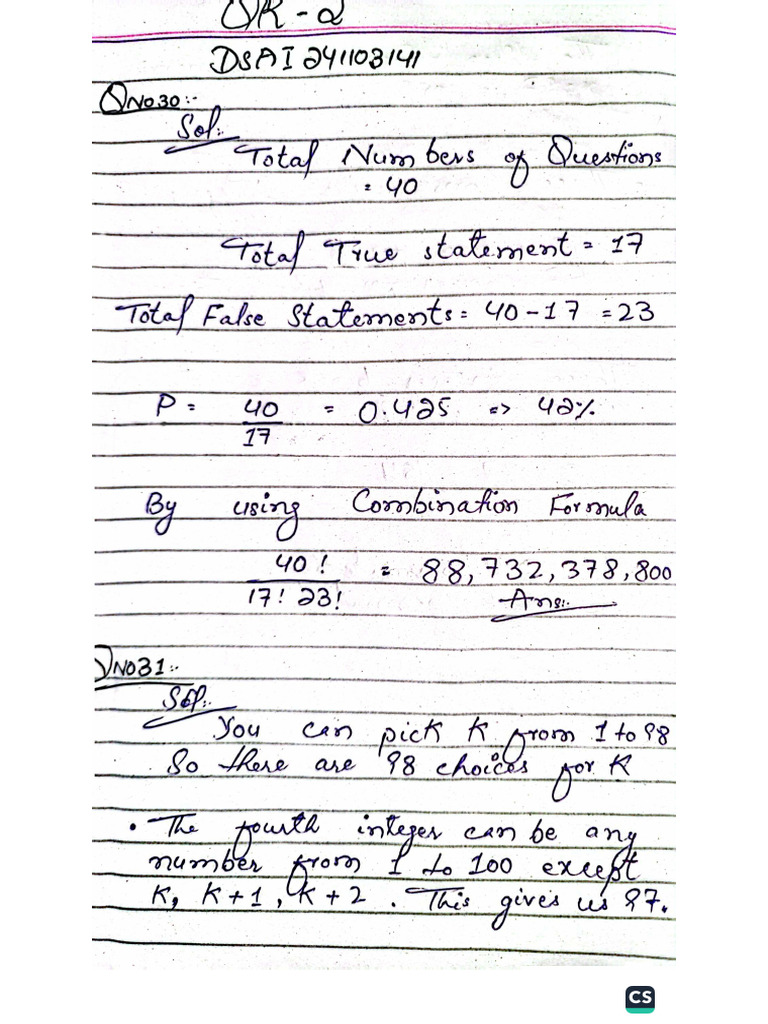 QR - 2
DSAI 241103141
QNO30:-
Sol:.
Total Numbers of Questions
= 40
Total True statement = 17
Total False Statements = 40 - 17 = 23
P = 40 / 17 = 0.425 => 42%
By using Combination Formula
40! / 17! 23! = 88,732,378,800
Ans:.
QNO31:.
Sol:.
You can pick K from 1 to 98
So there are 98 choices for K
• The fourth integer can be any
number from 1 to 100 except
K, K+1, K+2. This gives us 97.
CS